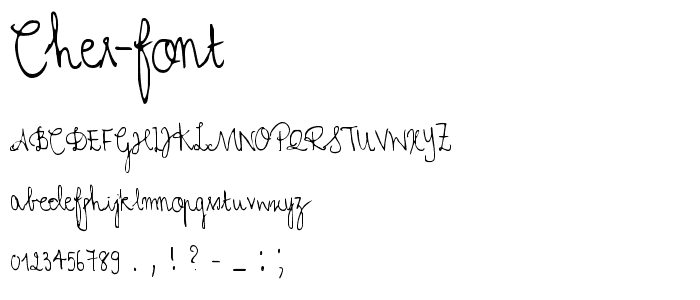 Cher-font
ABCDEFGHIJKLMNOPQRSTUVWXYZ
abcdefghijklmnopqrstuvwxyz
0123456789 . , ! ? - _ : ;